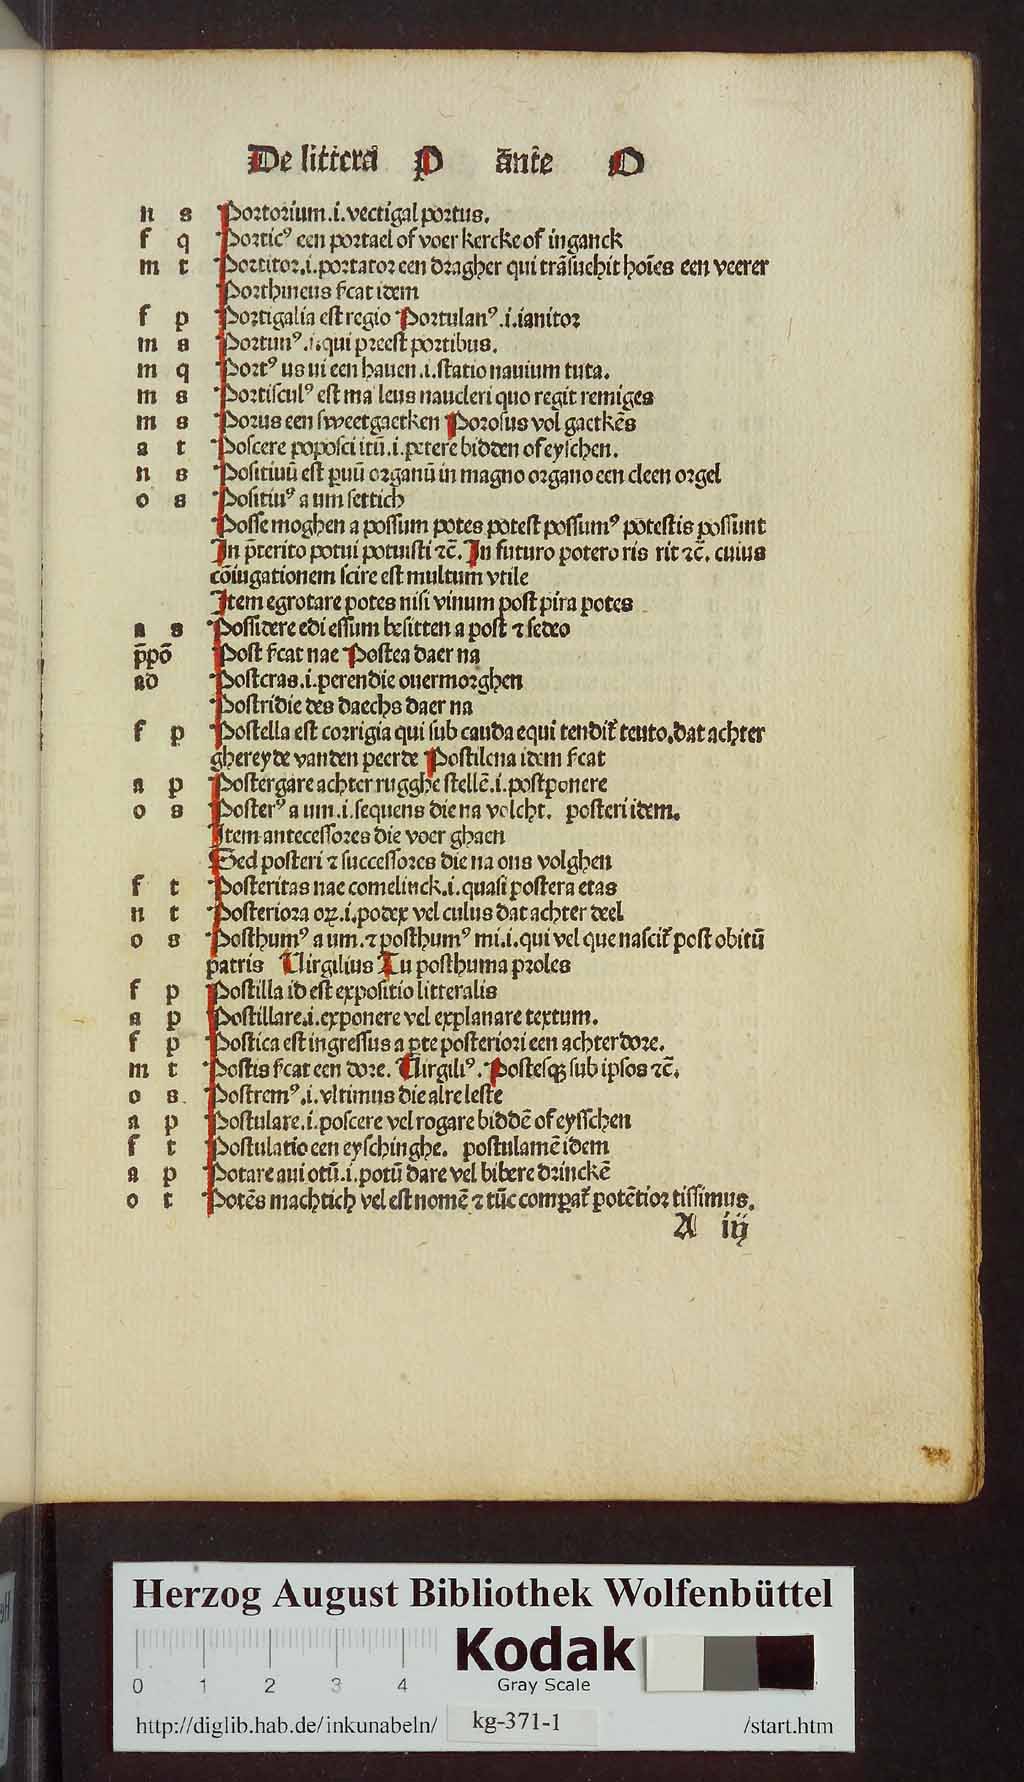 De litterā P ante O
n s Portorium .i. vectigal portus.
f q Porticꝰ een portael of voer kercke of inganck
m t Portitor .i. portator een dragher qui trāsuehit hoīes een veerer
Porthmeus s̄cat idem
f p Portigalia est regio Portulanꝰ .i. ianitor
m s Portunꝰ .i. qui preest portibus.
m q Portꝰ us ui een hauen .i. statio nauium tuta.
m s Portisculꝰ est malleus naucleri quo regit remiges
m s Porus een sweetgaetken Porosus vol gaetkēs
a t Poscere poposci itū .i. petere bidden of eysschen.
n s Positiuū est puū organū in magno organo een cleen orgel
o s Positiuꝰ a um settich
Posse moghen a possum potes potest possumꝰ potestis possunt
In p̄terito potui potuisti ꝛc̄. In futuro potero ris rit ꝛc̄. cuius
cōiugationem scire est multum vtile
Item egrotare potes nisi vinum post pira potes
a s Possidere edi essum besitten a post ꝛ sedeo
p̄pō Post s̄cat nae Postea daer na
ad Postcras .i. perendie ouermorghen
Postridie des daechs daer na
f p Postella est corrigia qui sub cauda equi tendit᷑ tento, dat achter
ghereyde vanden peerde Postilena idem s̄cat
a p Postergare achter rugghe stellē .i. postponere
o s Posterꝰ a um .i. sequens die na volcht. posteri idem.
Item antecessores die voer ghaen
Sed posteri ꝛ successores die na ons volghen
f t Posteritas nae comelinck .i. quasi postera etas
n t Posteriora oꝝ .i. podex vel culus dat achter deel
o s Posthumꝰ a um. ꝛ posthumꝰ mi .i. qui vel que nascit᷑ post obitū
patris Uirgilius Tu posthuma proles
f p Postilla id est expositio litteralis
a p Postillare .i. exponere vel explanare textum.
f p Postica est ingressus a ꝑte posteriori een achterdore.
m t Postis s̄cat een dore. Uirgiliꝰ. Postesqꝫ sub ipsos ꝛc̄.
o s Postremꝰ .i. vltimus die alre leste
a p Postulare .i. poscere vel rogare biddē of eysschen
f t Postulatio een eyschinghe. postulamē idem
a p Potare aui otū .i. potū dare vel bibere drinckē
o t Potēs machtich vel est nomē ꝛ tūc comparat᷑ potētior tissimus.
A iij
Herzog August Bibliothek Wolfenbüttel
Kodak
Gray Scale
0 1 2 3 4
http://diglib.hab.de/inkunabeln/ kg-371-1 /start.htm